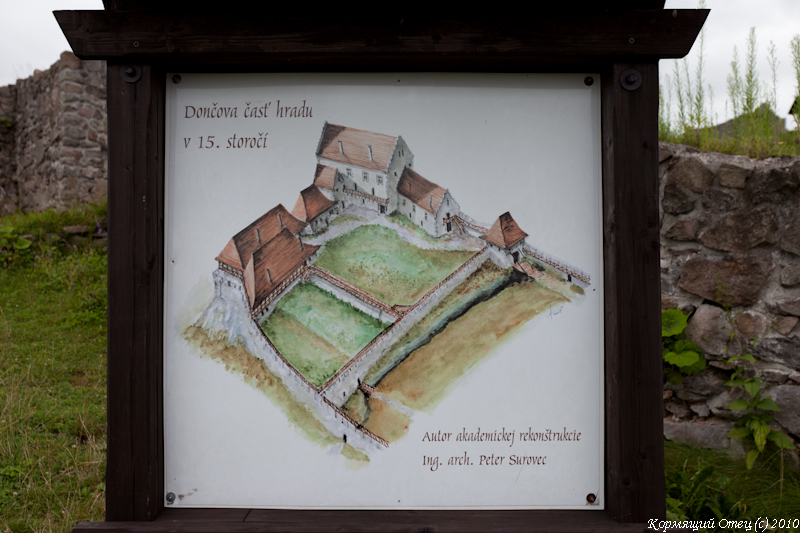 Dončova časť hradu
v 15. storočí
Autor akademickej rekonštrukcie
Ing. arch. Peter Surovec
Кормящий Отец (c) 2010